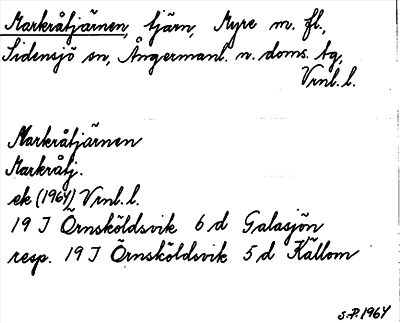 Markråtjärnen, tjärn, Myre m. fl.,
Sidensjö sn, Ångermanl. n. doms. tg,
Vrnl. l.
Markråtjärnen
Markråtj.
ek (1964) Vrnl. l.
19 I Örnsköldsvik 6 d Galasjön
resp. 19 I Örnsköldsvik 5 d Källom
S.P. 1964